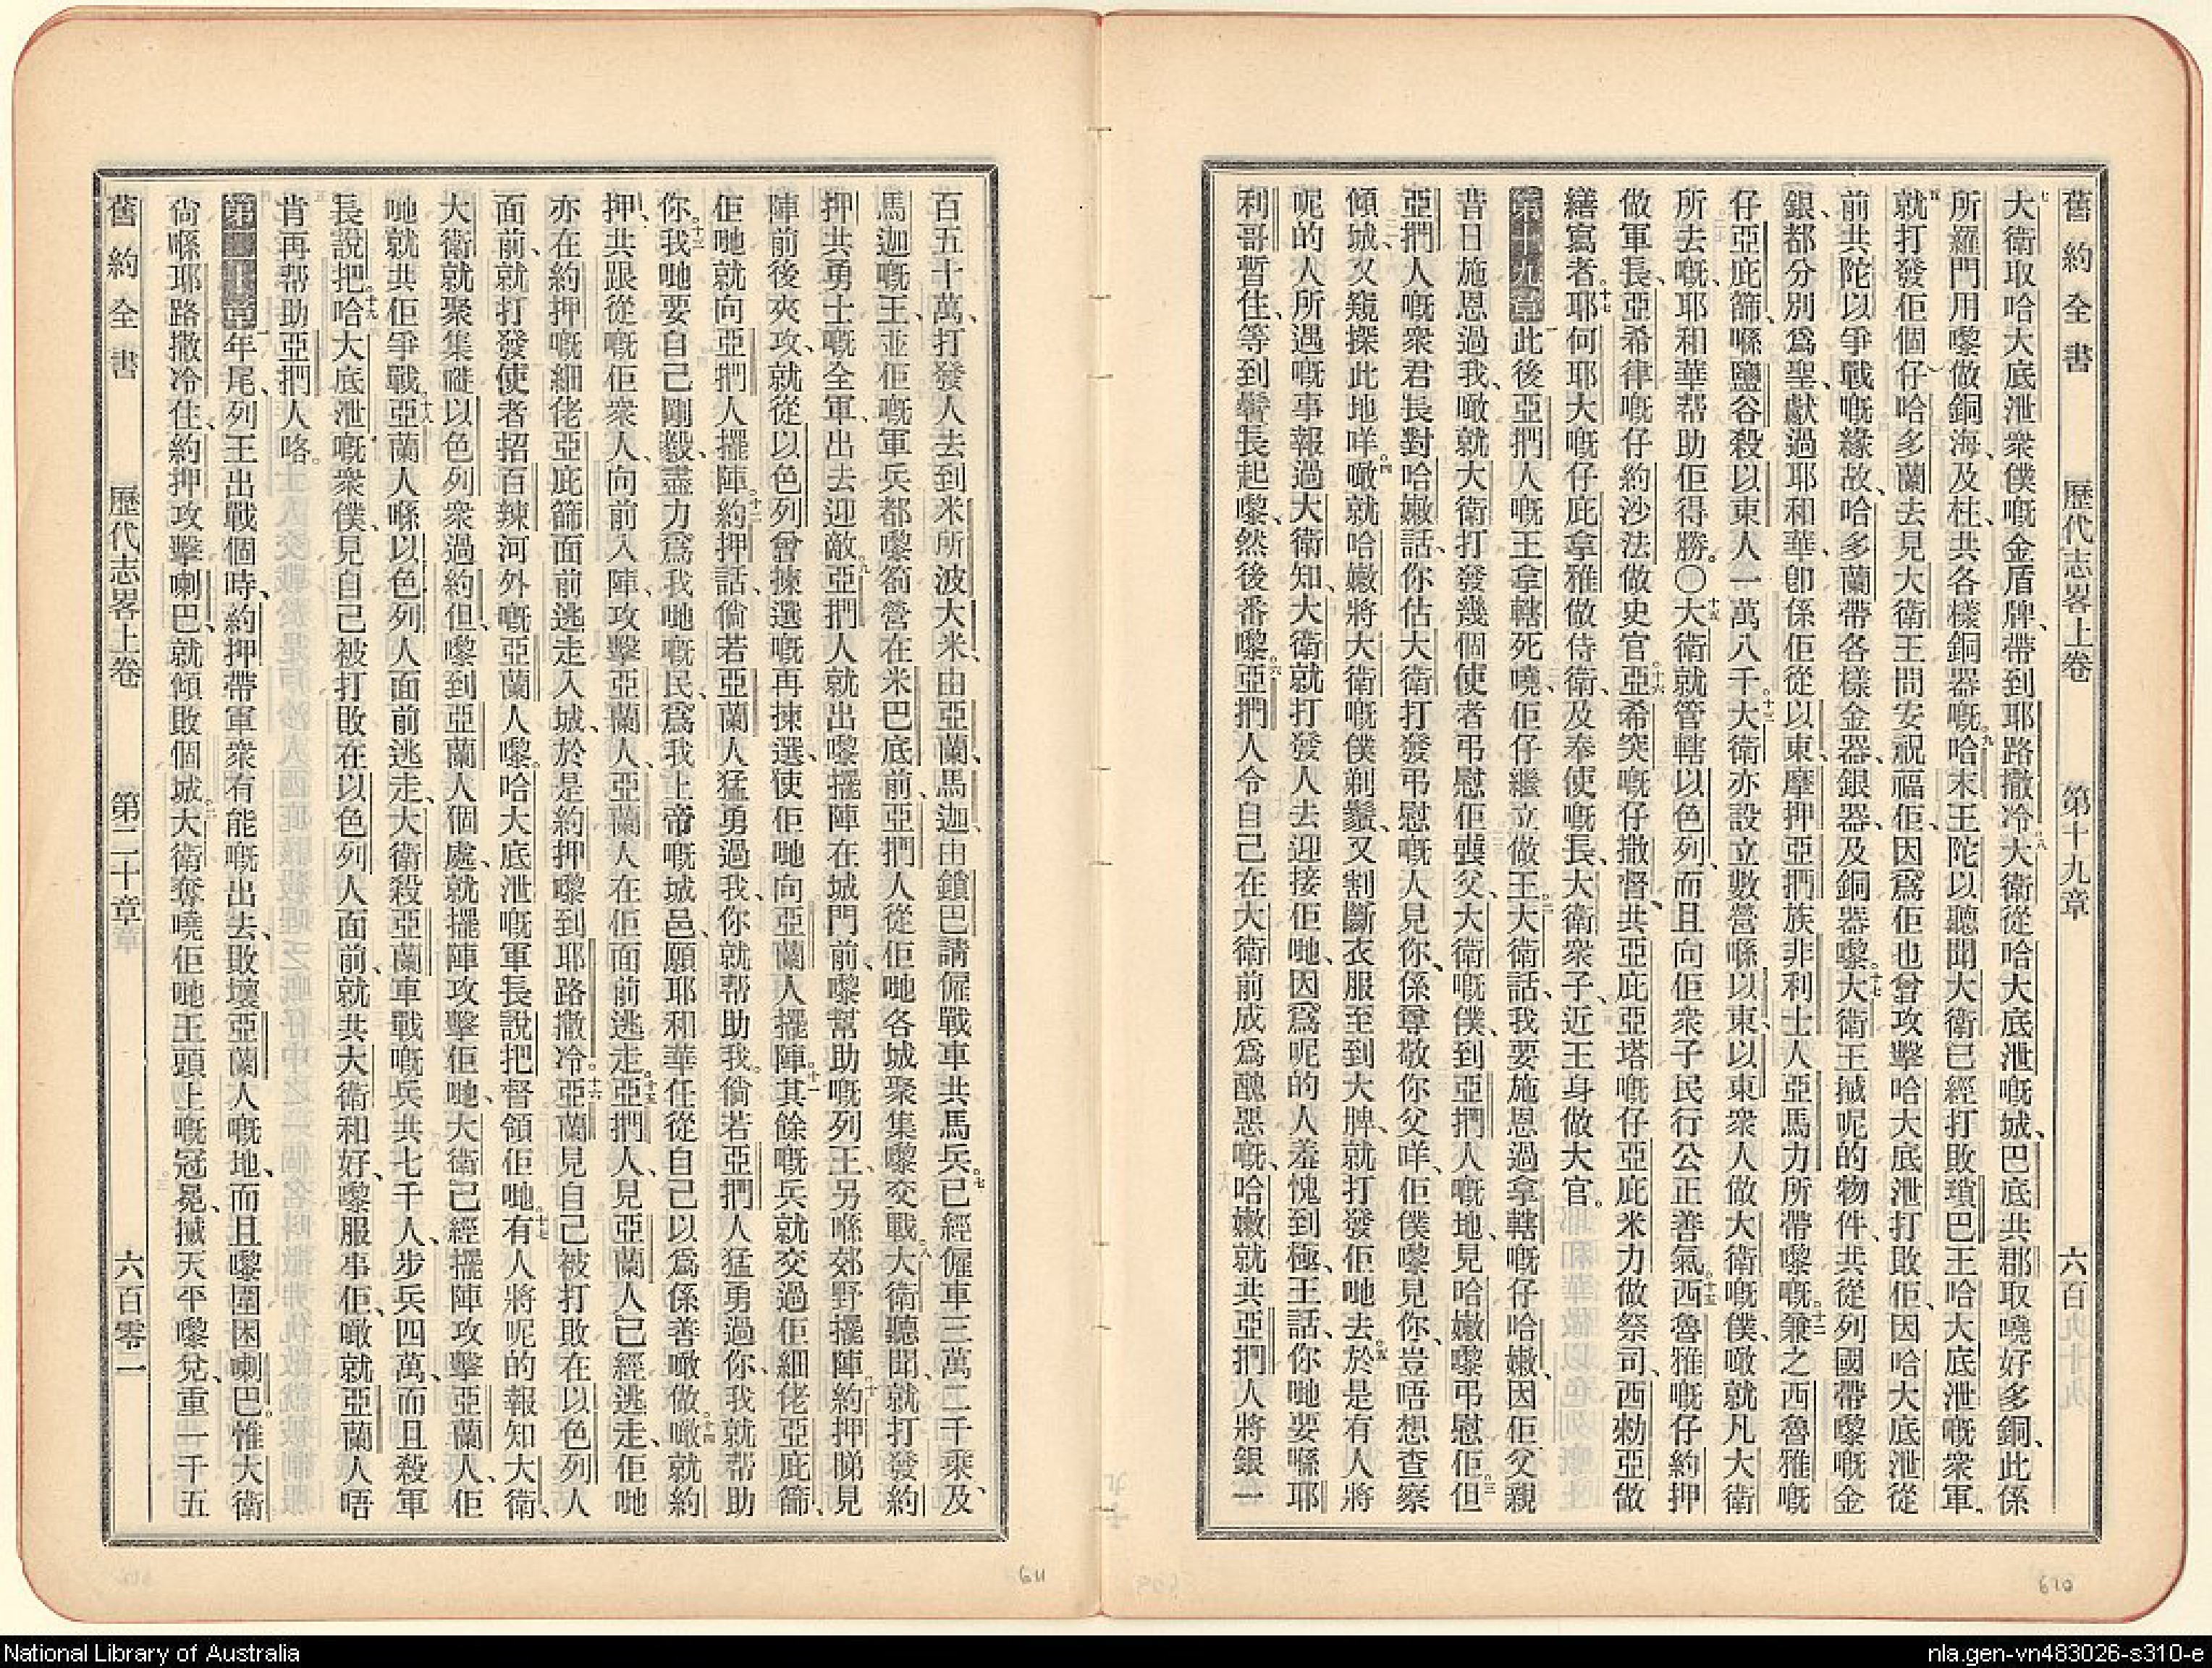 舊約全書 歷代志畧上卷 第十九章 六百
七大衛取哈大底泄衆僕嘅金盾牌、帶到耶路撒冷。八大衛從哈大底泄嘅城、巴底共郡取嘵好多銅、此係
所羅門用嚟做銅海、及柱、共各樣銅器嘅。九哈末王陀以聽聞大衛已經打敗瑣巴王哈大底泄嘅衆軍、
就打發佢個仔哈多蘭去見大衛王問安祝福佢、因爲佢也曾攻擊哈大底泄打敗佢、因哈大底泄從
前共陀以爭戰嘅緣故、哈多蘭帶各樣金器、銀器、及銅器嚟。十七大衛王搣呢的物件、共從列國帶嚟嘅金
銀、都分別爲聖、獻過耶和華、卽係佢從以東、摩押亞捫族非利士人亞馬力所帶嚟嘅。十二兼之西魯雅嘅
仔亞庇篩、喺鹽谷殺以東人一萬八千。十三大衛亦設立數營喺以東、以東衆人做大衛嘅僕、噉就凡大衛
所去嘅、耶和華帮助佢得勝。〇大衛就管轄以色列、而且向佢衆子民行公正善氣。十五西魯雅嘅仔約押
做軍長、亞希律嘅仔約沙法做史官。十六亞希突嘅仔撒督、共亞庇亞塔嘅仔亞庇米力做祭司、西勑亞做
繕寫者。十七耶何耶大嘅仔庇拿雅做侍衛、及奉使嘅長、大衛衆子、近王身做大官。
第十九章 一此後亞捫人嘅王拿轄死嘵、佢仔繼立做王。二大衛話、我要施恩過拿轄嘅仔哈嫩、因佢父親
昔日施恩過我、噉就大衛打發幾個使者弔慰佢喪父、大衛嘅僕、到亞捫人嘅地、見哈嫩嚟弔慰佢。三但
亞捫人嘅衆君長對哈嫩話、你估大衛打發弔慰嘅人見你、係尊敬你父咩、佢僕嚟見你、豈唔想查察
傾城、又窺探此地咩。四噉就哈嫩將大衛嘅僕剃鬚、又割斷衣服至到大脾、就打發佢哋去。五於是有人將
呢的人所遇嘅事報過大衛知、大衛就打發人去迎接佢哋、因爲呢的人羞愧到極、王話、你哋要喺耶
利哥暫住、等到鬚長起嚟、然後番嚟。六亞捫人令自己在大衛前成爲醜惡嘅、哈嫩就共亞捫人將銀一
百五十萬、打發人去到米所波大米、由亞蘭馬迦、由鎖巴請僱戰車共馬兵。七已經僱車三萬二千乘、及
馬迦嘅王、並佢嘅軍兵都嚟箚營在米巴底前、亞捫人從佢哋各城聚集嚟交戰。八大衛聽聞、就打發約
押共勇士嘅全軍出去迎敵。九亞捫人就出嚟擺陣在城門前、嚟幫助嘅列王、另喺郊野擺陣。十約押睇見
陣前後夾攻、就從以色列曾揀選嘅再揀選、使佢哋向亞蘭人擺陣。十一其餘嘅兵就交過佢細佬亞庇篩、
佢哋就向亞捫人擺陣。十二約押話、倘若亞蘭人猛勇過我、你就帮助我。倘若亞捫人猛勇過你、我就帮助
你。十三我哋要自己剛毅、盡力爲我哋嘅民、爲我上帝嘅城邑、願耶和華任從自己以爲係善噉做。十四噉就約
押、共跟從嘅佢衆人、向前入陣、攻擊亞蘭人、亞蘭人在佢面前逃走。十五亞捫人、見亞蘭人已經逃走、佢哋
亦在約押嘅細佬亞庇篩面前逃走入城、於是約押嚟到耶路撒冷。十六亞蘭見自己被打敗在以色列人
面前、就打發使者招百辣河外嘅亞蘭人嚟。哈大底泄嘅軍長說把督領佢哋。十七有人將呢的報知大衛、
大衛就聚集磋以色列衆過約但、嚟到亞蘭人個處、就擺陣攻擊佢哋、大衛已經擺陣攻擊亞蘭人、佢
哋就共佢爭戰。十八亞蘭人喺以色列人面前逃走、大衛殺亞蘭車戰嘅兵共七千人、步兵四萬、而且殺軍
長說把。十九哈大底泄嘅衆僕、見自己被打敗在以色列人面前、就共大衛和好、嚟服事佢、噉就亞蘭人唔
肯再帮助亞捫人咯。
第二十章 一年尾、列王出戰個時、約押帶軍衆有能嘅出去、敗壞亞蘭人嘅地、而且嚟圍困喇巴。惟大衛
尙喺耶路撒冷住、約押攻擊喇巴、就傾敗個城。二大衛奪嘵佢哋王頭上嘅冠冕、搣天平嚟兌、重一千五
舊約全書 歷代志畧上卷 第二十章 六百零一
611
610
National Library of Australia
nla.gen-vn483026-s310-e